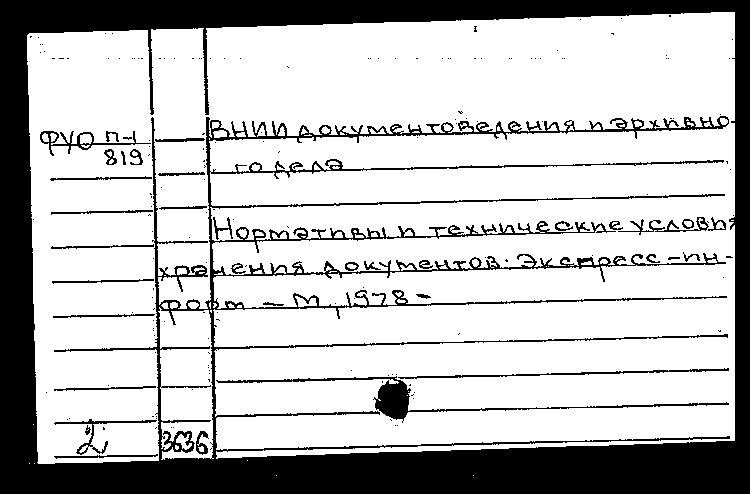 ФУО П-1
819
ВНИИ документоведения и архивно-
го дела
Нормативы и технические условия
хранения документов: Экспресс-ин-
форм — М, 1978 -
2
3636